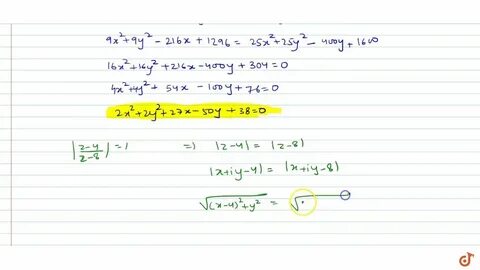 9x²+9y² - 216x + 1296 = 25x²+25y² - 400y + 1600
16x²+16y² + 216x - 400y + 304 = 0
4x²+4y² + 54x - 100y + 76 = 0
2x²+2y²+27x-50y+38=0
|z-4/z-8| = 1 ⇒ |z-4| = |z-8|
|x+iy-4| = |x+iy-8|
√(x-4)²+y² = √